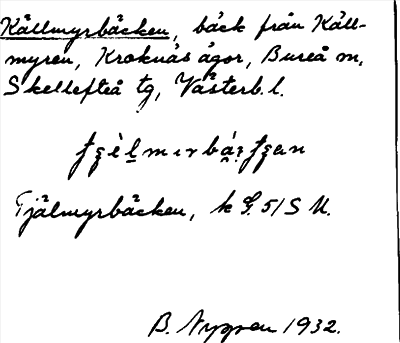 Källmyrbäcken, bäck från Käll-
myren, Kroknäs ägor, Bureå m,
Skellefteå tg, Västerb. l.
Tjälmyrbäcken, k G. 51 S U.
B. Nygren 1932.